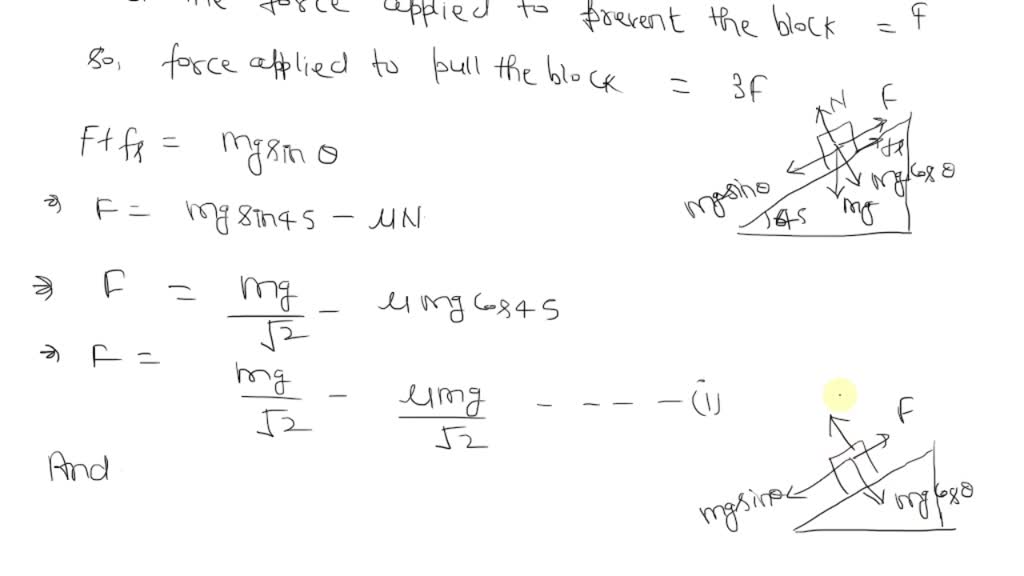 the force applied to prevent the block = F
So, force applied to pull the block = 3F
F+fs = mgsinθ
⇒ F = mgsin45 - μN
⇒ F = mg/√2 - μmgcos45
⇒ F = mg/√2 - μmg/√2 - - - - -(1)
And
N F
fs
mgsinθ mgcosθ
45 mg
F
mgsinθ mgcosθ